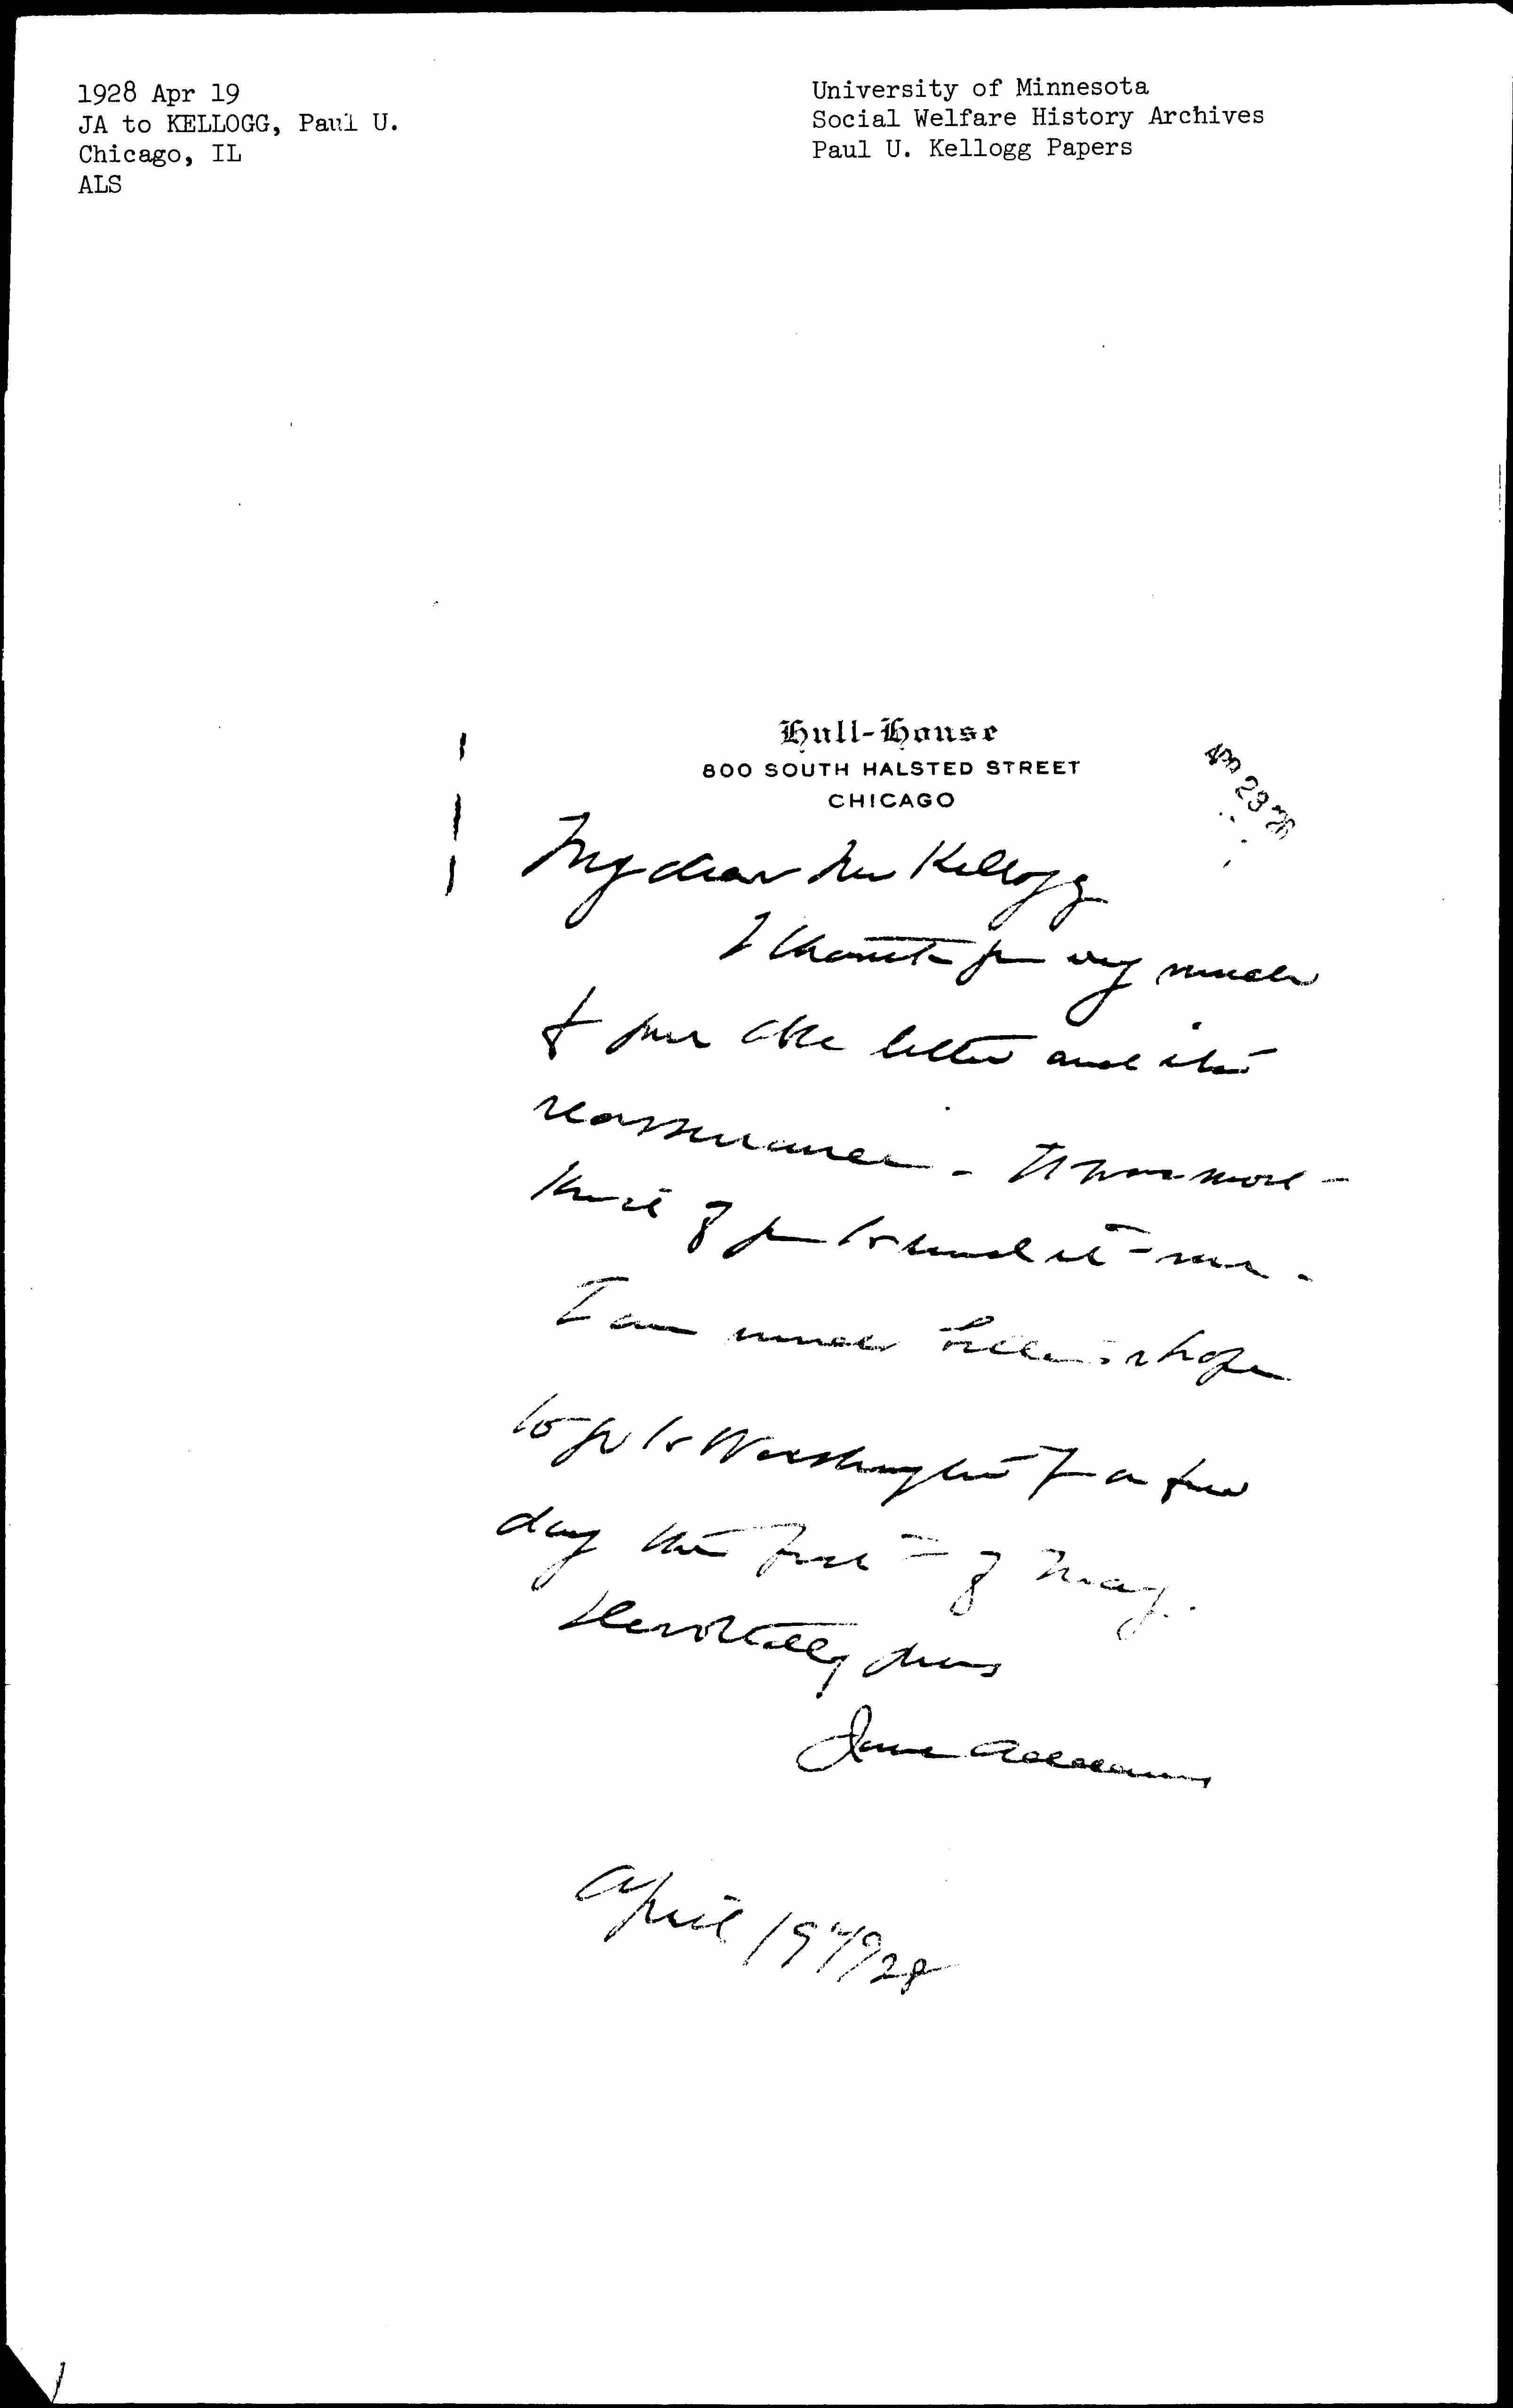 1928 Apr 19
JA to KELLOGG, Paul U.
Chicago, IL
ALS
University of Minnesota
Social Welfare History Archives
Paul U. Kellogg Papers
Hull-House
800 SOUTH HALSTED STREET
CHICAGO
APR 23 '28
My dear Mr Kellogg
I thank you very much
for your letter and its
reassurance - It was most
kind of you to send it
I am much better & hope
to go to Washington for a few
days the first of May.
Devotedly yours
Jane Addams
April 19" 1928